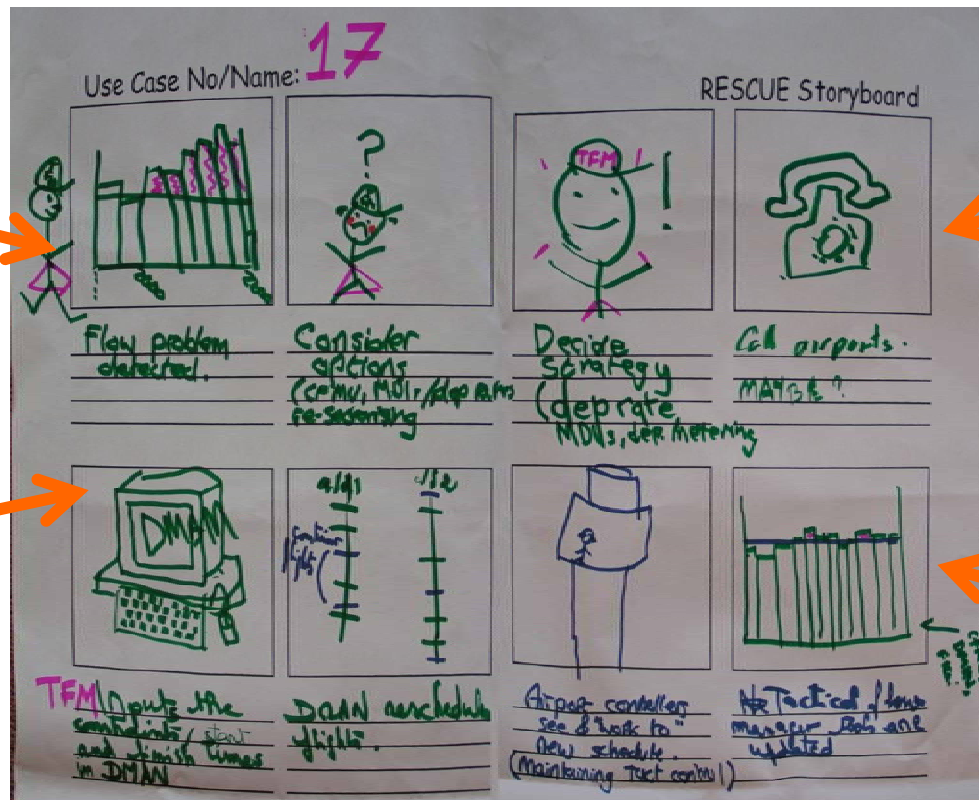 17
Use Case No/Name:
RESCUE Storyboard
?
TFM
!
Flow problem
detected.
Consider
options
(cfmu, MDIs, /dep rates
re-sectorising
Decide
Strategy
(dep rate,
MDIs, dep. metering
Call airports.
MAYBE?
DMAN
TFM inputs the
constraints / start
and finish times
in DMAN
flights
DMAN reschedules
flights.
Airport controllers
see & work to
new schedule.
(Maintaining Tact control)
Tactical flow
manager
updated